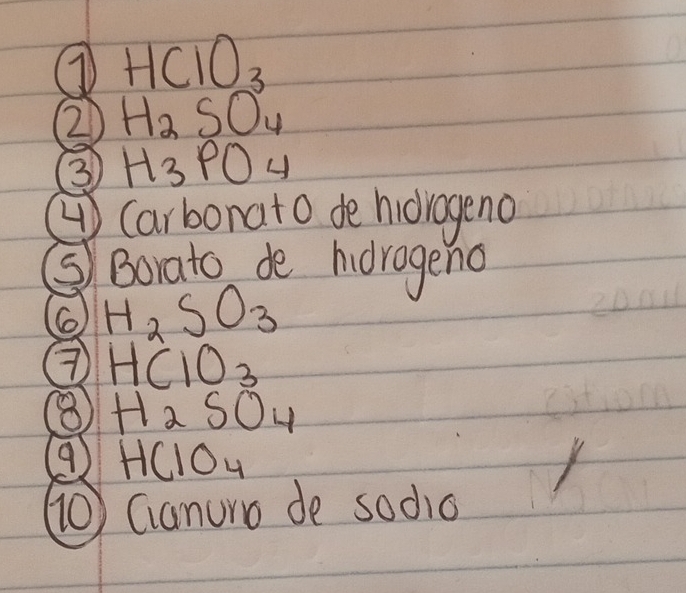 ① HClO₃
② H₂SO₄
③ H₃PO₄
④ Carbonato de hidrogeno
⑤ Borato de hidrogeno
⑥ H₂SO₃
⑦ HClO₃
⑧ H₂SO₄
⑨ HClO₄
⑩ Cianuro de sodio